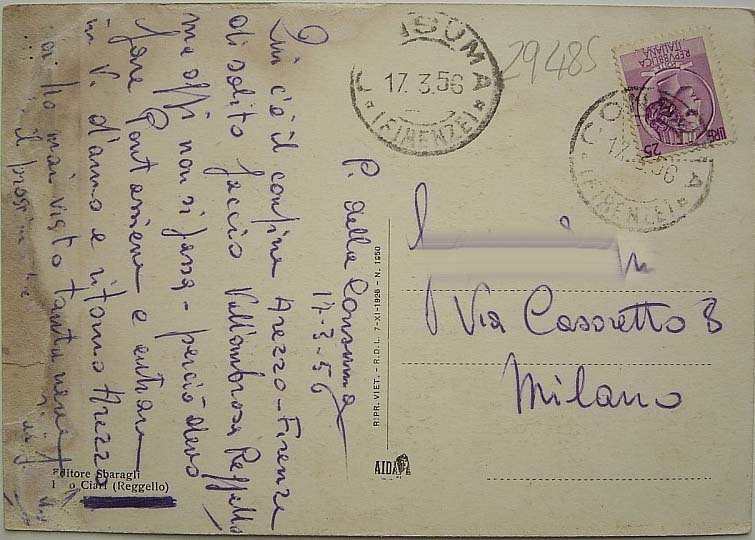 P. della Consuma
17-3-56
Qui c'è il confine Arezzo-Firenze
di solito faccio Vallombrosa Reggello
ma oggi non si passa - perciò devo
fare Pontassieve e entrare
in V. d'arno e ritorno Arezzo
ho mai visto tanta neve
il
CONSUMA
17.3.56
(FIRENZE)
29485
REPUBBLICA
ITALIANA
LIRE 25
CONSUMA
17.3.56
(FIRENZE)
Via Casoretto 3
Milano
RIPR. VIET. - R.D.L. 7-XI-1926 - N. 1950
AIDA
Editore Sbaragli
Ciari (Reggello)